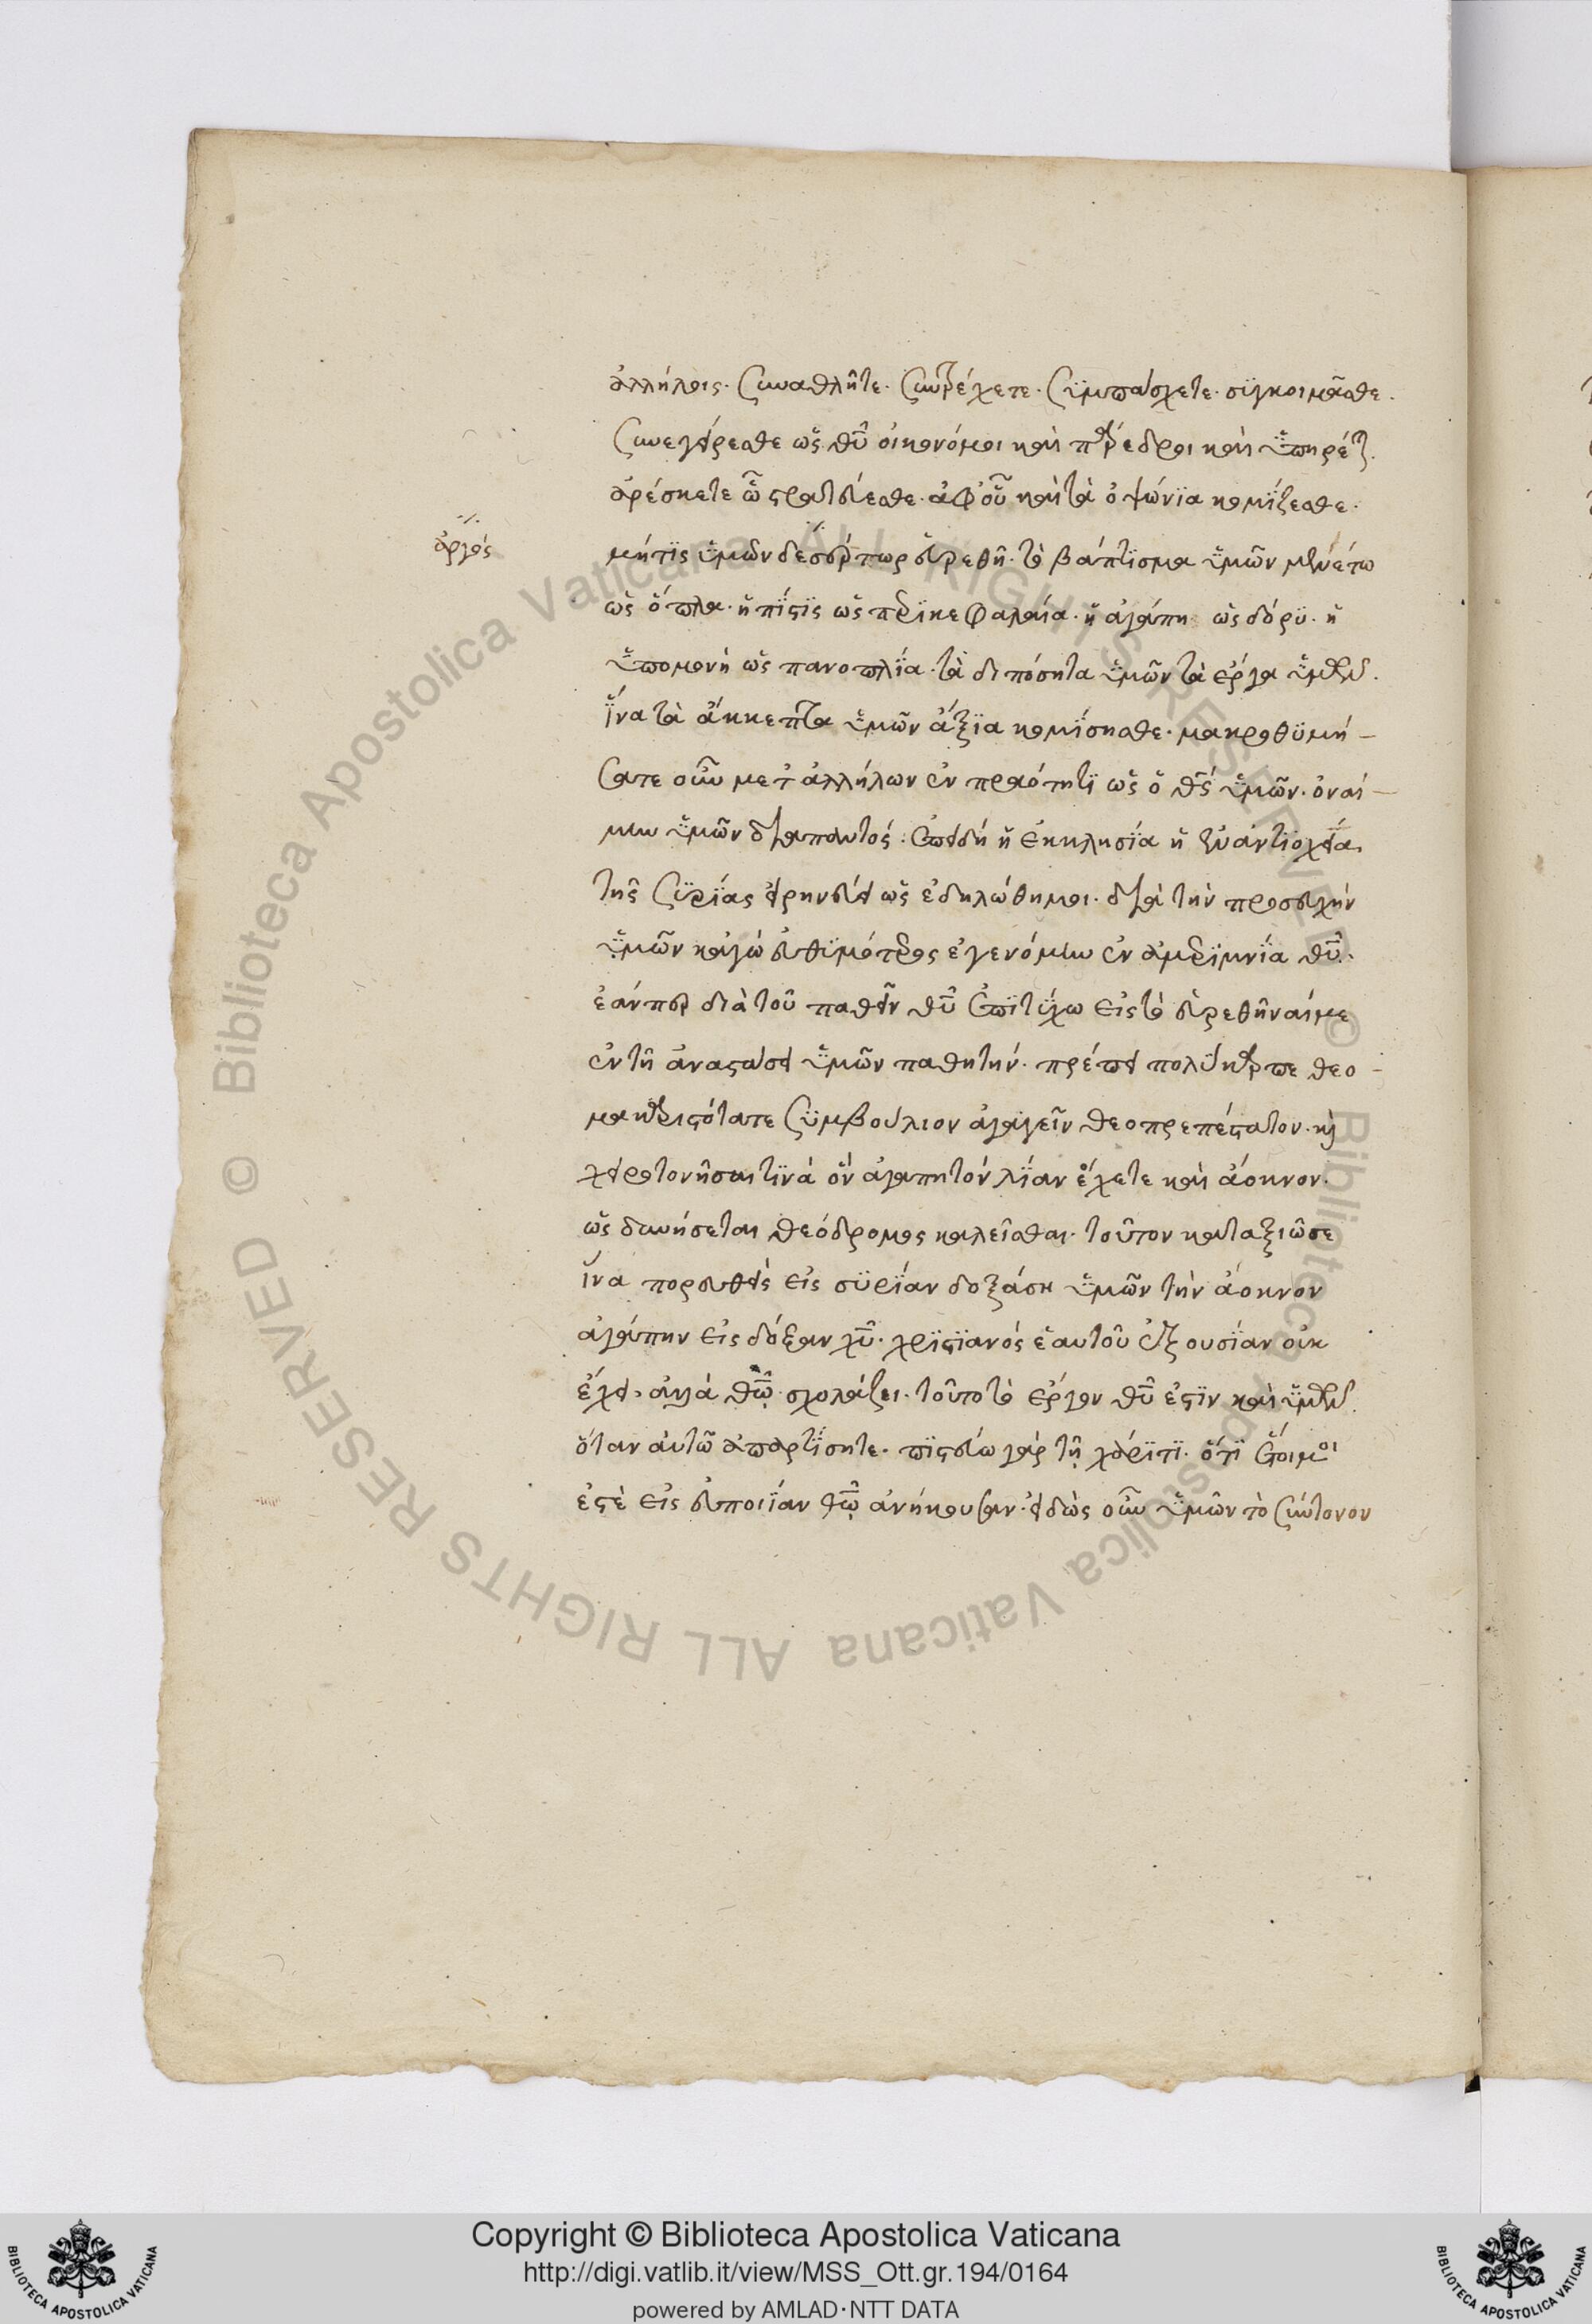 ἀλλήλοις. συναθλῆτε. συντρέχετε. συμπάσχετε. συγκοιμᾶσθε.
συνεγείρεσθε ὡς θῦ οἰκονόμοι καὶ πάρεδροι καὶ ὑπηρέτ.
ἀρέσκετε ὧ στρατεύεσθε. ἀφ' οὗ καὶ τὰ ὀψώνια κομίζεσθε.
ἀργός
μήτις ὑμῶν δεσέρτωρ εὑρεθῆ. τὸ βάπτισμα ὑμῶν μενέτω
ὡς ὅπλα. ἡ πίστις ὡς περικεφαλαία. ἡ ἀγάπη ὡς δόρυ. ἡ
ὑπομονή ὡς πανοπλία. τὰ διπόσητα ὑμῶν τὰ ἔργα ὑμῶν.
ἵνα τὰ ἄκκεπτα ὑμῶν ἄξια κομίσησθε. μακροθυμή-
σατε οὖν μετ' ἀλλήλων ἐν πραότητι ὡς ὁ θς ὑμῶν. ὀναί-
μην ὑμῶν διαπαντός. ἐπειδή ἡ ἐκκλησία ἡ ἐν ἀντιοχεία
τῆς συρίας εἰρηνεύει ὡς ἐδηλώθη μοι. διὰ τὴν προσευχήν
ὑμῶν κἀγὼ εὐθυμότερος ἐγενόμην ἐν ἀμεριμνία θῦ.
ἐάνπερ διὰ τοῦ παθεῖν θῦ ἐπιτύχω εἰς τὸ εὑρεθῆναί με
ἐν τῆ ἀναστάσει ὑμῶν παθητήν. πρέπει πολύκαρπε θεο-
μακαριστότατε συμβούλιον ἀγαγεῖν θεοπρεπέστατον. κὶ
χειροτονῆσαι τινά ὃν ἀγαπητόν λίαν ἔχετε καὶ ἄοκνον.
ὡς δυνήσεται θεόδρομος καλεῖσθαι. τοῦτον καταξιῶσε
ἵνα πορευθεὶς εἰς συρίαν δοξάση ὑμῶν τὴν ἄοκνον
ἀγάπην εἰς δόξαν χῦ. χριστιανός ἑαυτοῦ ἐξουσίαν οὐκ
ἔχει. ἀλλὰ θῷ σχολάζει. τοῦτο τὸ ἔργον θῦ ἐστιν καὶ ὑμῶν.
ὅταν αὐτῶ ἀπαρτίσητε. πιστεύω γάρ τῇ χάριτι. ὅτι ἕτοιμοι
ἐστὲ εἰς εὐποιίαν θῷ ἀνήκουσαν. εἰδὼς οὖν ὑμῶν τὸ σύντονον
Copyright © Biblioteca Apostolica Vaticana
http://digi.vatlib.it/view/MSS_Ott.gr.194/0164
powered by AMLAD·NTT DATA